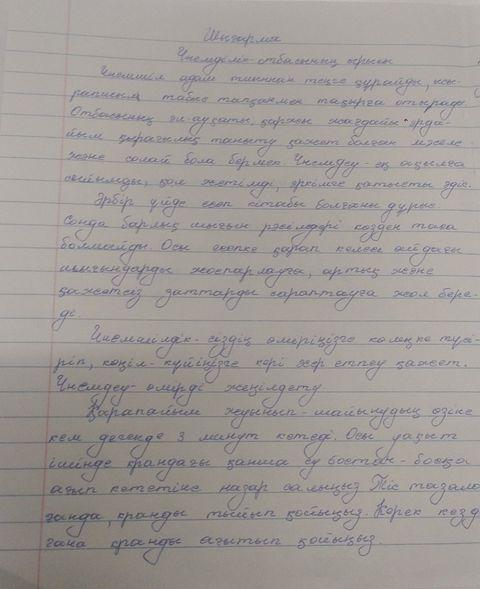 Шығарма
Үнемділік-отбасының ырысы
Үнемшіл адам тиыннан теңге құрайды, ысы-
рапшыл табыс тапқанмен тақырға отырады.
Отбасының әл-ауқаты, қаржы жағдайы әрда-
йым қырағылық танытуды қажет болған мәселе
және солай бола бермек. Үнемдеу - ең ақылға
сыйымды, қол жетімді, әркімге қатысты әдіс.
Әрбір үйде есеп кітабы болғаны дұрыс.
Сонда барлық шығын рәсімдері көзден таса
болмайды. Осы есепке қарап келесі айдағы
шығындарды жоспарлауға, артық және
қажетсіз заттарды сараптауға жол бере-
ді.
Үнемшілдік - сіздің өміріңізге көлеңке түсі-
ріп, көңіл-күйіңізге кері әсер етпеу қажет.
Үнемдеу - өмірді жеңілдету.
Қарапайым жуынып-шайынудың өзіне
кем дегенде 3 минут кетеді. Осы уақыт
ішінде крандағы қанша су бостан-босқа
ағып кететіне назар салыңыз. Тіс тазала
ғанда, кранды тыйып қойыңыз. Керек кезд
ғана кранды ағытып қойыңыз.